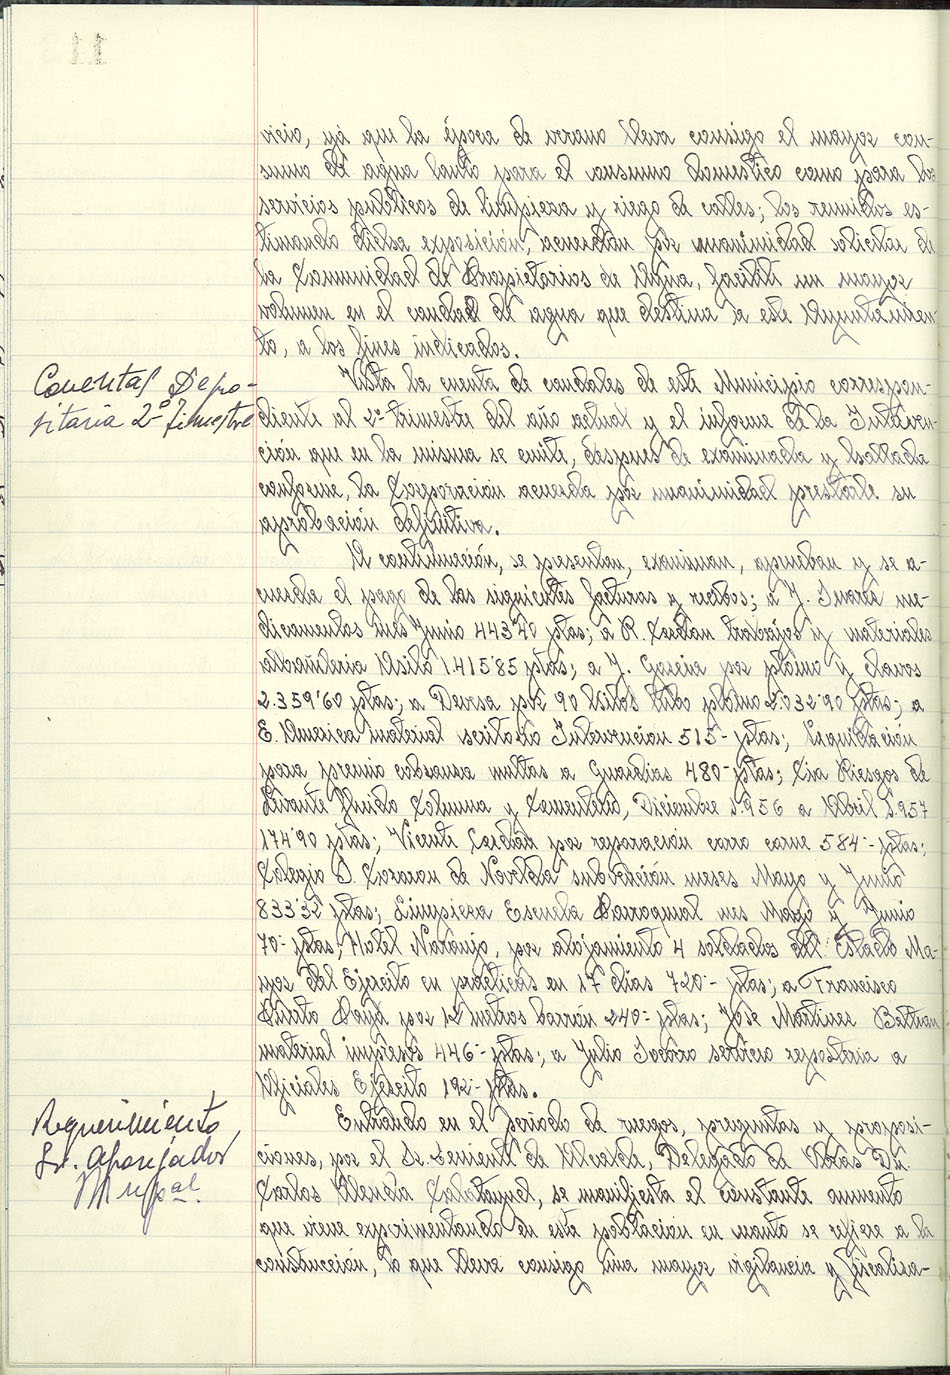 vicio, ya que la época de verano lleva consigo el mayor con-
sumo de agua tanto para el consumo doméstico como para los
servicios públicos de limpieza y riego de calles; los reunidos es-
timando dicha exposición, acuerdan por unanimidad solicitar de
la Comunidad de Propietarios de Agua, facilite un mayor
volumen en el caudal de agua que destina a este Ayuntamien-
to, a los fines indicados.
Cuentas Depo-
sitaria 2º trimestre
Vista la cuenta de caudales de este Municipio correspon-
diente al 2º trimestre del año actual y el informe de la Interven-
ción que en la misma se emite, después de examinada y hallada
conforme, la Corporación acuerda por unanimidad prestarle su
aprobación definitiva.
A continuación, se presentan, examinan, aprueban y se a-
cuerda el pago de las siguientes facturas y recibos; a J. me-
dicamentos mes Junio 443'40 ptas; a R. trabajos y materiales
albañileria 1415'85 ptas; a J. Garcia por plomo y clavos
2.359'60 ptas; a Deursa por 90 kilos tubo plomo 2.032'90 ptas; a
E. America material scritorio Intervencion 515- ptas; Liquidación
para premio cobranza multas a Guardias 480- ptas; Cia Riegos de
Levante fluido Columna y Cementerio, Diciembre 1.956 a Abril 1.957
174'90 ptas; Vicente por reparación carro carne 584'- ptas;
Colegio S. Corazon de Novelda subvención meses Mayo y Junio
833'32 ptas; Limpieza Escuela Parroquial mes Mayo y Junio
70- ptas; Hotel Naranjo, por alojamiento 4 soldados del Estado Ma-
yor del Ejército en prácticas en 17 dias 720'- ptas; a Francisco
por 12 metros 240- ptas; Jose Martinez Beltran
material impreso 446- ptas; a Julio servicio reposteria a
Oficiales Ejército 192- ptas.
Requerimiento
Sr. Aparejador
Mupal.
Entrando en el período de ruegos, preguntas y proposi-
ciones, por el Sr. Teniente de Alcalde, Delegado de Obras Dn.
Carlos Calatayud, se manifiesta el constante aumento
que viene experimentando en esta población en cuanto se refiere a la
construcción, lo que lleva consigo una mayor vigilancia y fiscaliza-